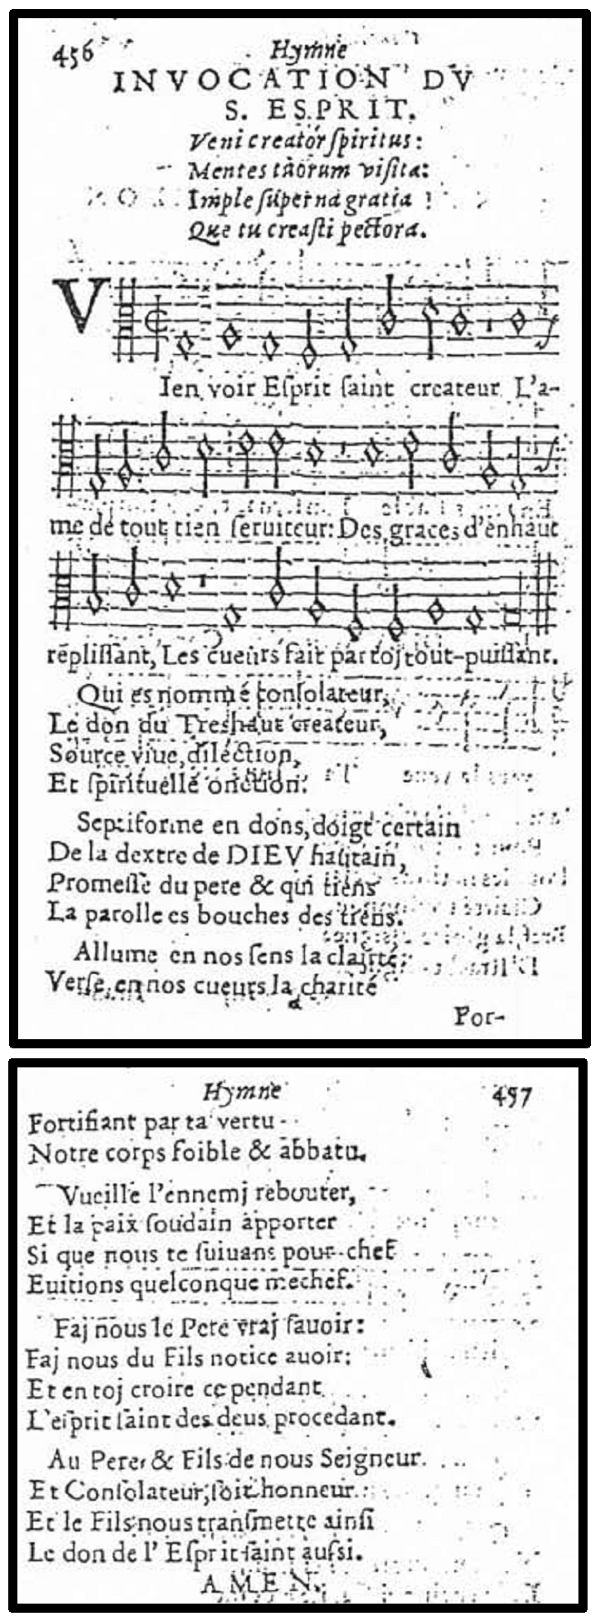 456 Hymne
INVOCATION DV
S. ESPRIT.
Veni creator ſpiritus:
Mentes tuorum viſita:
Imple ſuperna gratia
Que tu creaſti pectora.
V
Ien voir Eſprit ſaint createur L'a-
me de tout tien ſeruiteur: Des graces d'enhaut
rēpliſſant, Les cueurs fait par toj tout-puiſſant.
Qui es nommé conſolateur,
Le don du Treshaut createur,
Source viue, dilection,
Et ſpirituelle onction.
Septiforme en dons, doigt certain
De la dextre de DIEV hautain,
Promeſſe du pere & qui tiens
La parolle es bouches des tiens.
Allume en nos ſens la clairté:
Verſe en nos cueurs la charité
For-
Hymne 457
Fortifiant par ta vertu
Notre corps foible & abbatu.
Vueille l'ennemj rebouter,
Et la paix ſoudain apporter
Si que nous te ſuiuans pour chef
Euitions quelconque mechef.
Faj nous le Pere vraj ſauoir:
Faj nous du Fils notice auoir:
Et en toj croire ce pendant
L'eſprit ſaint des deus procedant.
Au Pere, & Fils de nous Seigneur.
Et Conſolateur, ſoit honneur.
Et le Fils nous tranſmette ainſi
Le don de l' Eſprit ſaint auſsi.
AMEN.